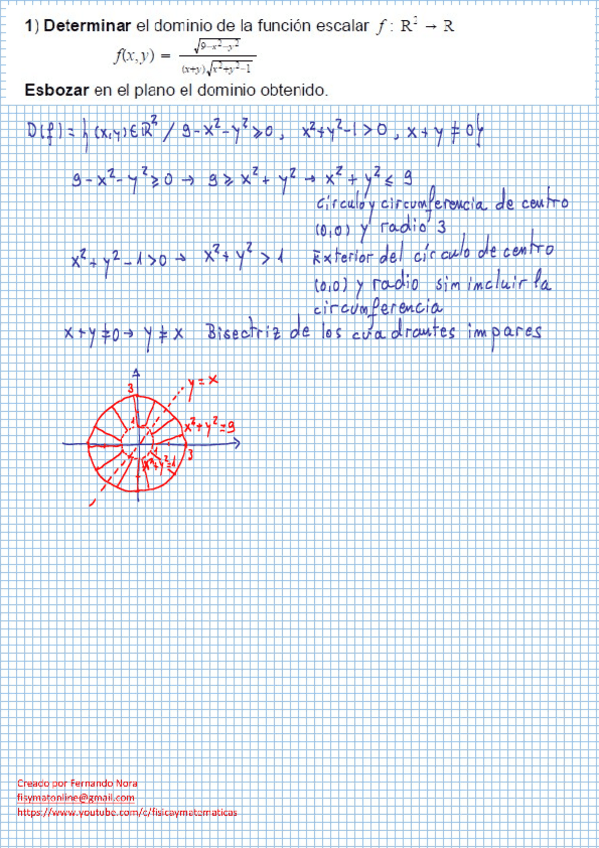 1) Determinar el dominio de la función escalar f : R² → R
f(x,y) = √(9−x²−y²) / ((x+y)√(x²+y²−1))
Esbozar en el plano el dominio obtenido.
D(f) = {(x,y) ∈ ℝ² / 9-x²-y² ≥ 0, x²+y²-1 > 0, x+y ≠ 0}
9-x²-y² ≥ 0 → 9 ≥ x²+y² → x²+y² ≤ 9
círculo y circumferencia de centro
(0,0) y radio 3
x²+y²-1>0 → x²+y² > 1 Exterior del círculo de centro
(0,0) y radio sim imcluir la
circumferencia
x+y≠0 → y ≠ x Bisectriz de los cuadrantes impares
3
y=x
1
x²+y²=9
1
3
x²+y²=1
Creado por Fernando Nora
fisymatonline@gmail.com
https://www.youtube.com/c/fisicaymatematicas